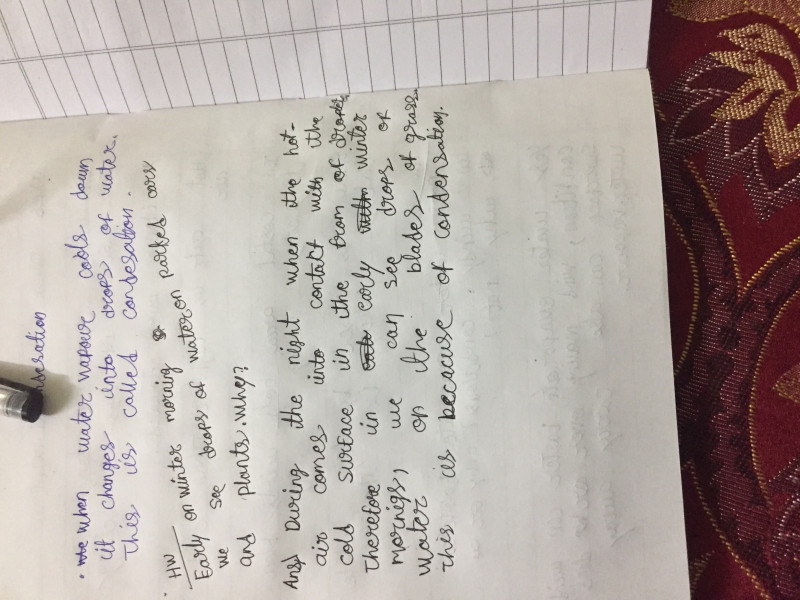 ndesation
• When water vapour cools down
it changes into drops of water.
This is called condesation.
HW
Early on winter morning
we see drops of water on parked cars
and plants. Why?
Ans) During the night when the hot
air comes into contact with the
cold surface in the from of drops.
Therefore in early winter
mornigs, we can see drops of
water on the blades of grass.
this is because of condensation.